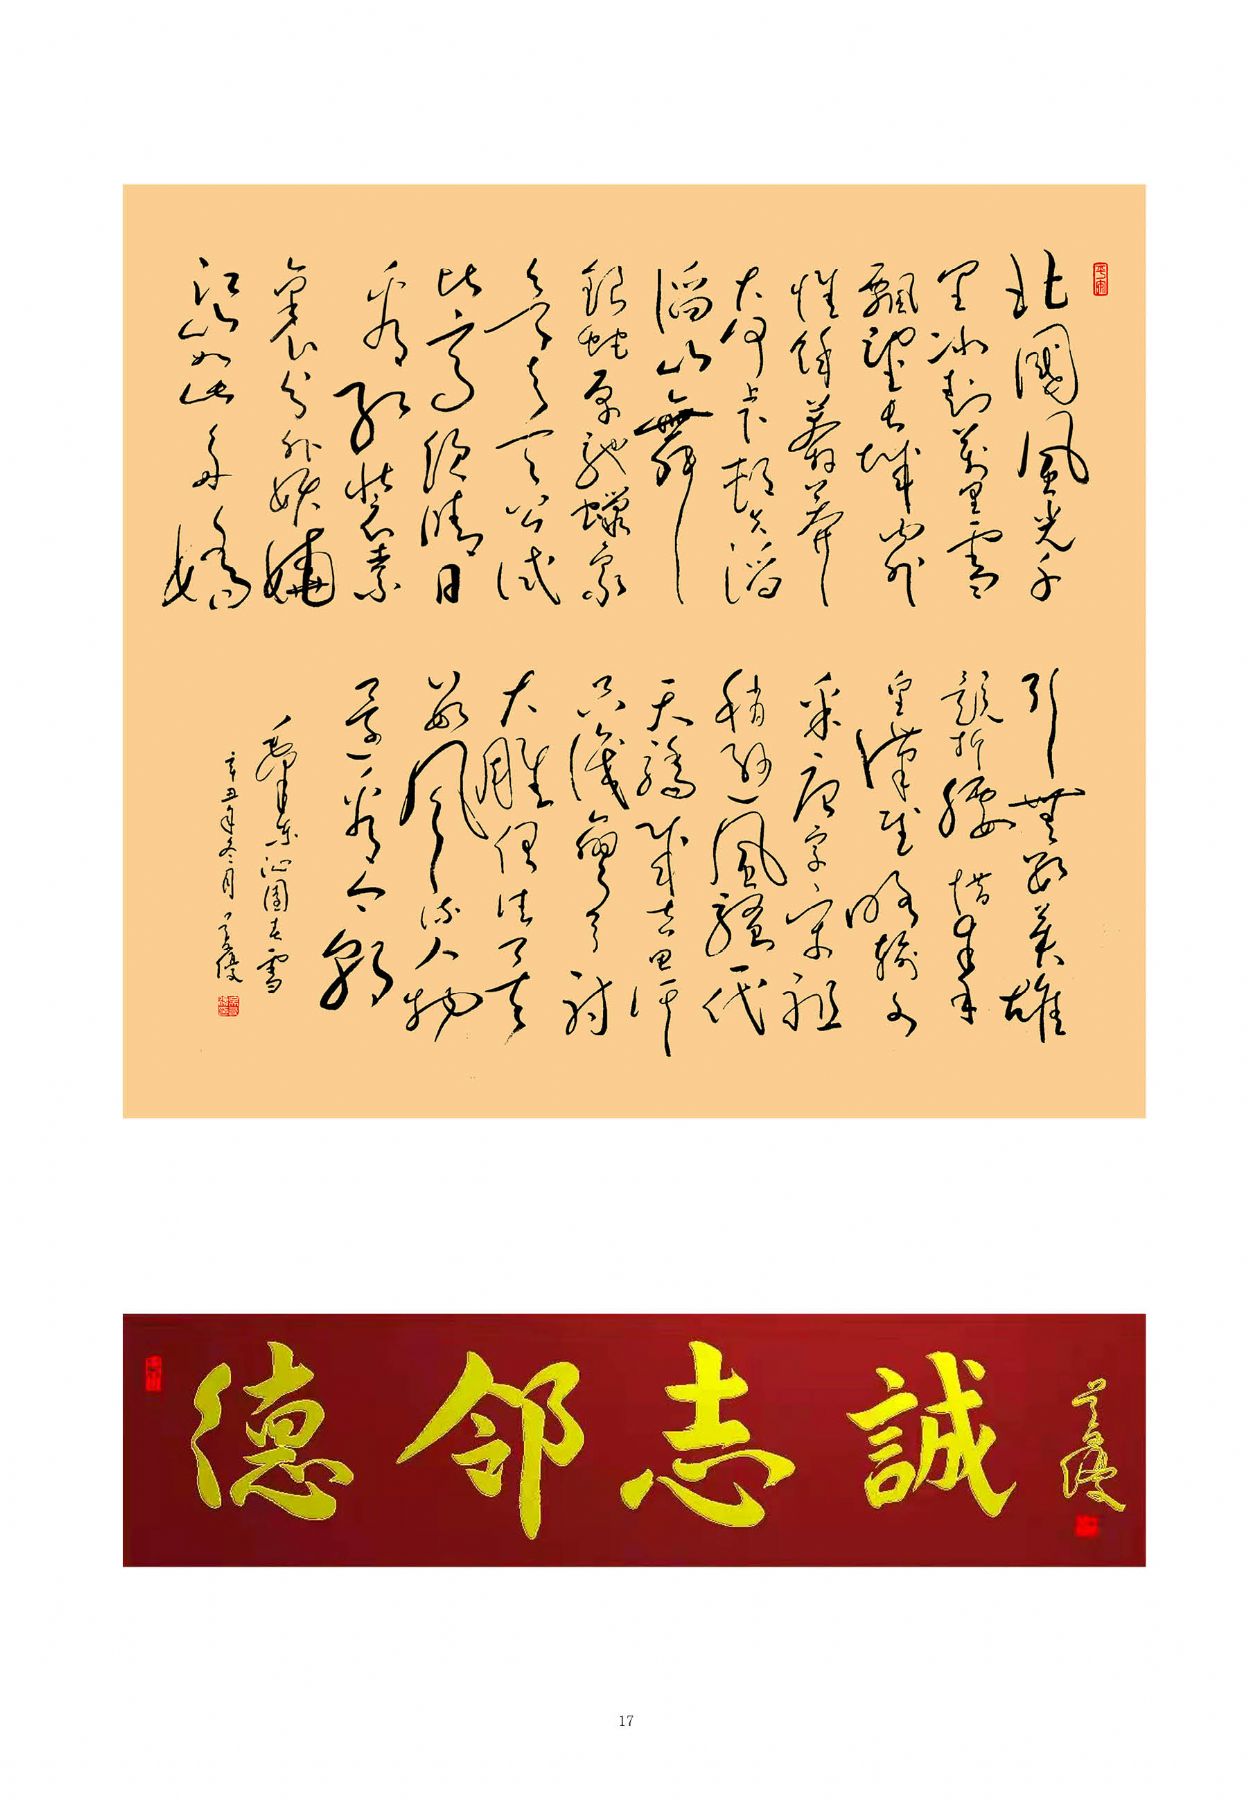 北國風光千
里冰封萬里雪
飄望長城內外
惟餘莽莽
大河上下頓失滔
滔山舞
銀蛇原馳蠟象
欲與天公試
比高須晴日
看紅裝素
裹分外妖嬈
江山如此多嬌
引無數英雄
競折腰惜秦
皇漢武略輸文
采唐宗宋祖
稍遜風騷一代
天驕成吉思汗
只識彎弓射
大雕俱往矣
數風流人物
還看今朝
毛澤東沁園春雪
辛丑年冬月
德邻志誠
17